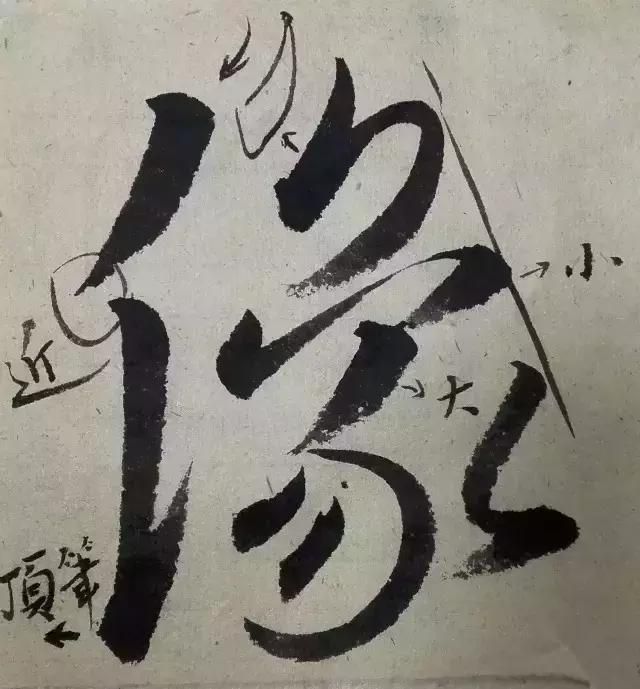 像
小
近
大
頂筆